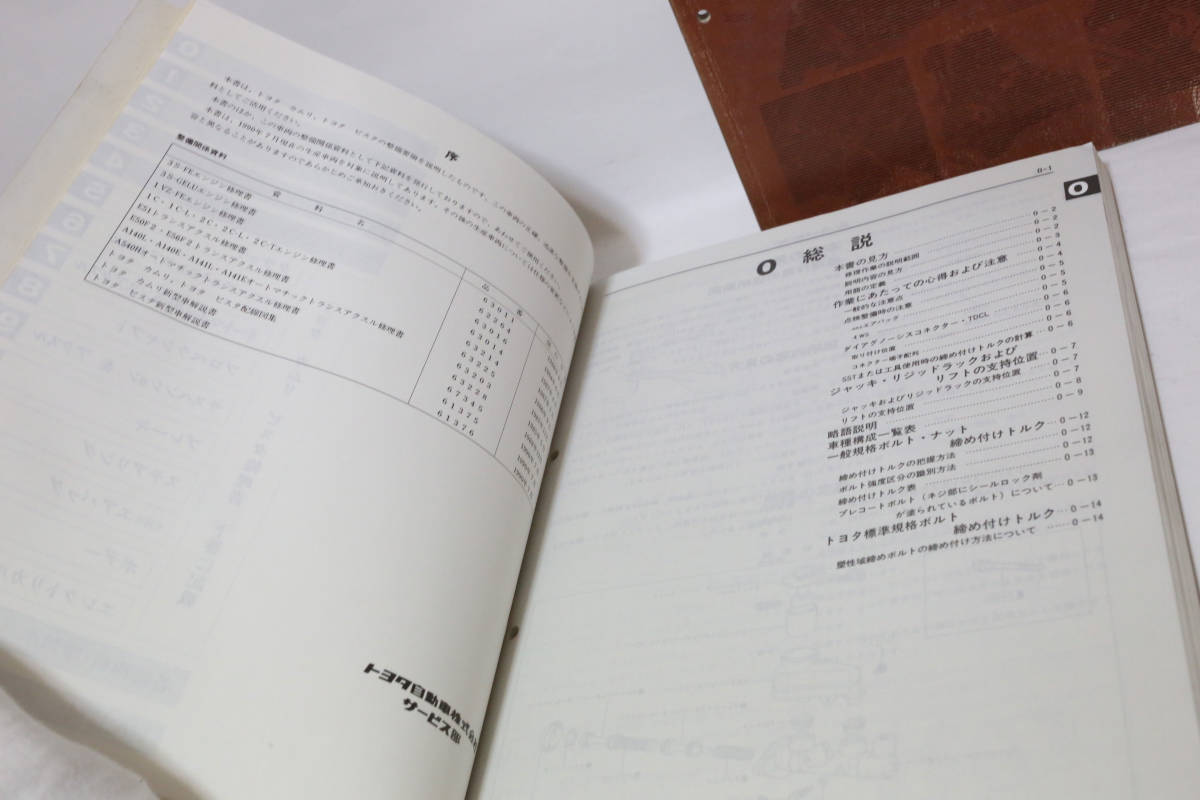 序
本書は，トヨタ カムリ，トヨタ ビスタの整備要領を説明したものです。この車両の正確，迅速な整備
料としてご活用ください。
本書のほか，この車両の整備関係資料として下記資料を発行しておりますので，あわせてご使用ください。
本書は，1990年7月現在の生産車両を対象に説明してあります。その後の生産車両については仕様の変更など
容と異なることがありますのであらかじめご承知おきください。
整備関係資料
資 料 名 品 番
3S-FEエンジン修理書 63017
3S-GELUエンジン修理書 62264
1VZ-FEエンジン修理書 63016
1C・1C-L・2C-L・2C-Tエンジン修理書 63014
E51トランスアクスル修理書 63214
E56F2・E50F2トランスアクスル修理書 63225
A140E・A140L・A141Eオートマチックトランスアクスル修理書 63203
A540Hオートマチックトランスアクスル修理書 63228
トヨタ カムリ，トヨタ ビスタ配線図集 67345
トヨタ カムリ新型車解説書 61375
トヨタ ビスタ新型車解説書 61376
トヨタ自動車株式会社
サービス部
0-1
0
0 総 説
本書の見方 0-2
修理作業の説明範囲 0-2
説明内容の見方 0-2
用語の定義 0-3
作業にあたっての心得および注意 0-4
一般的な注意点 0-4
点検整備時の注意 0-5
SRSエアバッグ 0-5
4WS 0-6
ダイアグノーシスコネクター・TDCL 0-6
取り付け位置 0-6
コネクター端子配列 0-6
SSTまたは工具使用時の締め付けトルクの計算 0-6
ジャッキ・リジッドラックおよび
リフトの支持位置 0-7
ジャッキおよびリジッドラックの支持位置 0-7
リフトの支持位置 0-7
略語説明 0-8
車種構成一覧表 0-9
一般規格ボルト・ナット
締め付けトルク 0-12
締め付けトルクの把握方法 0-12
ボルト強度区分の識別方法 0-12
締め付けトルク表 0-13
プレコートボルト（ネジ部にシールロック剤
が塗られているボルト）について 0-13
トヨタ標準規格ボルト
締め付けトルク 0-14
塑性域締めボルトの締め付け方法について 0-14